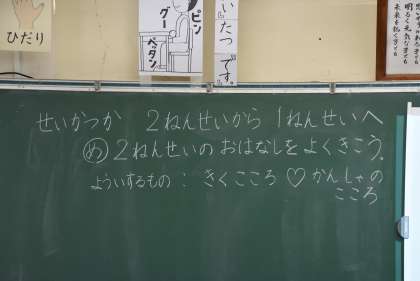 ひだり
ピン
グー
ペタン
い たつ
です。
明るく元気な子ども
せいかつか 2ねんせいから 1ねんせいへ
め 2ねんせいの おはなしを よくきこう。
よういするもの : きくこころ ♡ かんしゃの
こころ